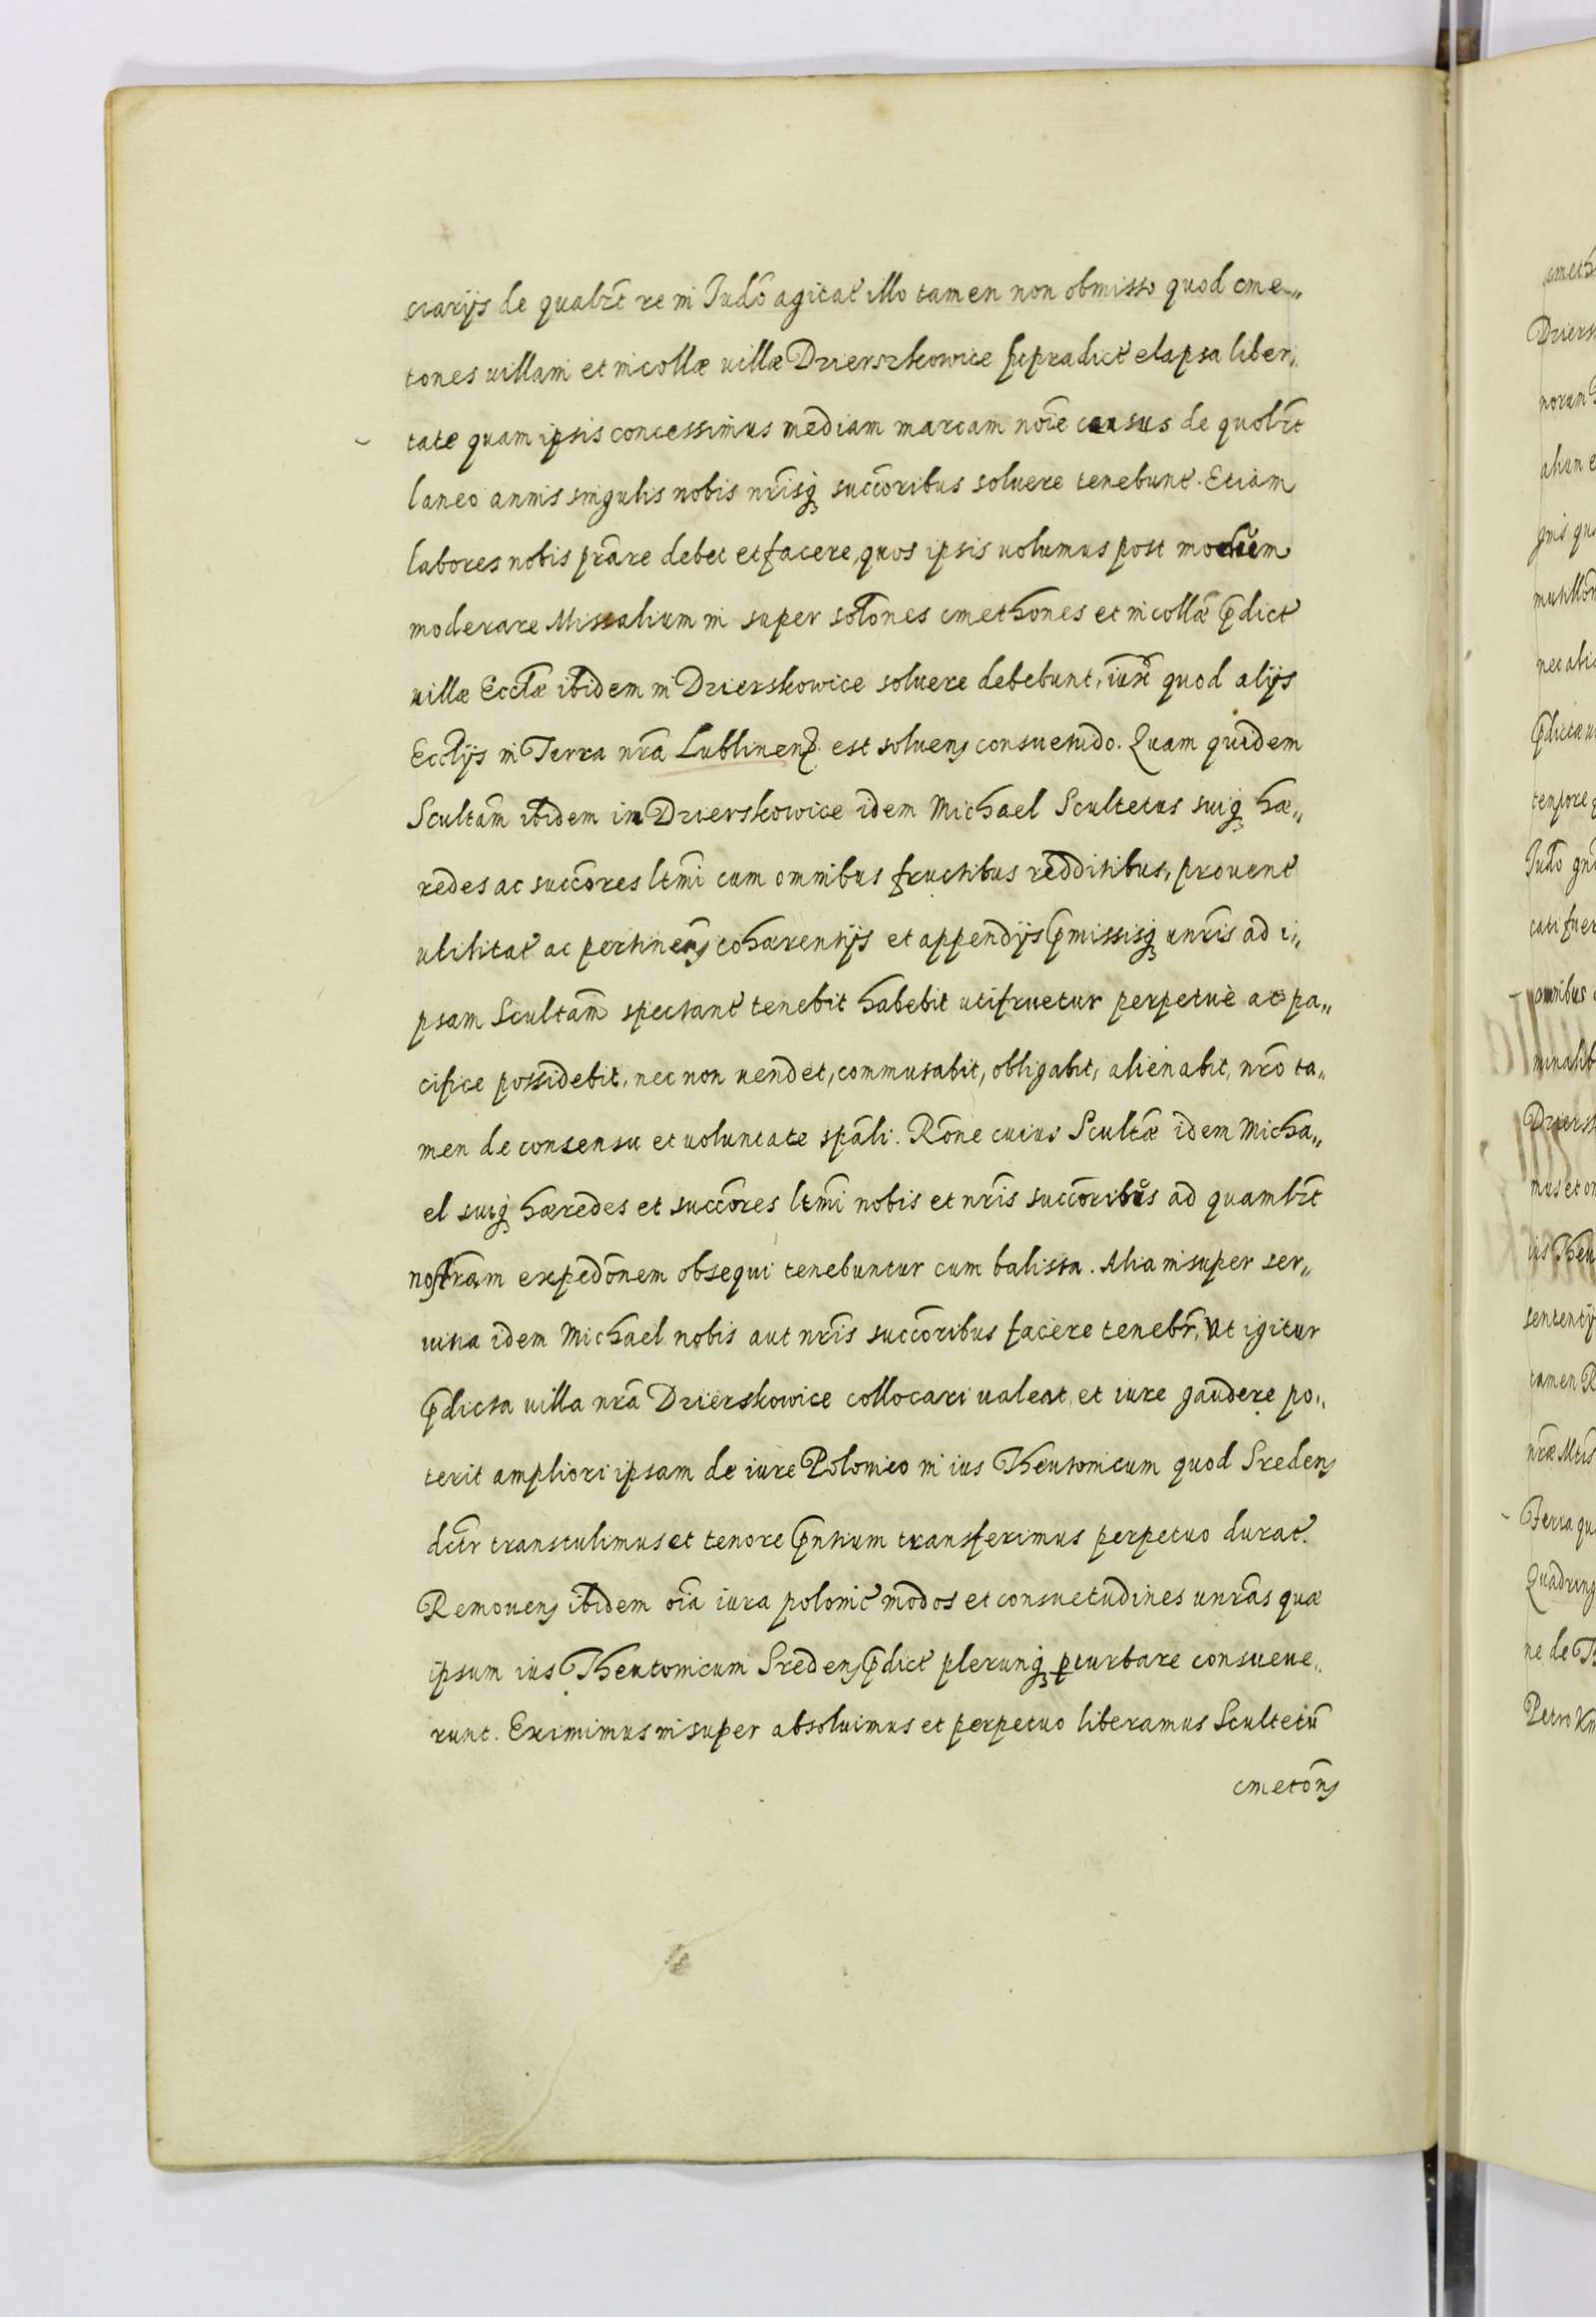 ciarijs de qualr̃t re in Judõ agitat̃ illo tamen non obmisso quod cme„
tones uillani et incollæ uillæ Dzierszkowice sæpradict̃ elapsa liber„
tate quam ipsis concessimus mediam marcam noĩe census de quolr̃t
laneo annis singulis nobis nr̃isq₃ succõribus soluere tenebunt̃. Etiam
labores nobis prãre debet et facere quos ipsis uolumus post modum
moderare Missalium in super solõnes cmethones et incollæ p̃dict̃
uillæ Ecclæ̃ ibidem in Dzierskowice soluere debebunt, iux̃ quod alijs
Ecclijs in Terra nrã Lublinen̄ est soluens consuetudo. Quam quidem
Scultam̃ ibidem in Dzierskowice idem Michael Scultetus suiq₃ hæ„
redes ac succõres ltm̃i cum omnibus fructibus redditibus, prouent̃
utilitat̃ ac pertineñs cohærentijs et appendijs p̃missisq₃ unr̃is ad i„
psam Scultam̃ spectant̃ tenebit habebit utifruetur perpetuè ac pa„
cifice possidebit, nec non uendet, commutabit, obligabit, alienabit, nrõ ta„
men de consensu et uoluntate spãli. Rõne cuius Scultæ̃ idem Micha„
el suiq₃ hæredes et succõres ltm̃i nobis et nr̃is succõribus ad quamlr̃t
nostram expedõnem obsequi tenebuntur cum balista. Alia insuper ser„
uitia idem Michael nobis aut nr̃is succõribus facere tenebr̃. Ut igitur
p̃dicta uilla nrã Dzierskowice collocari ualeat, et iure gaudere po„
terit ampliori ipsam de iure Polonico in ius Theutonicum quod Sredens
dct̃r transtulimus et tenore p̃ntium transferimus perpetuo durat̃.
Remouens ibidem oĩa iura polonic̃ modos et consuetudines unr̃as quæ
ipsum ius Theutonicum Sredens p̃dict̃ plerunq₃ ꝑturbare consueue„
runt. Eximimus insuper absoluimus et perpetuo liberamus Scultetũ
cmetoñs